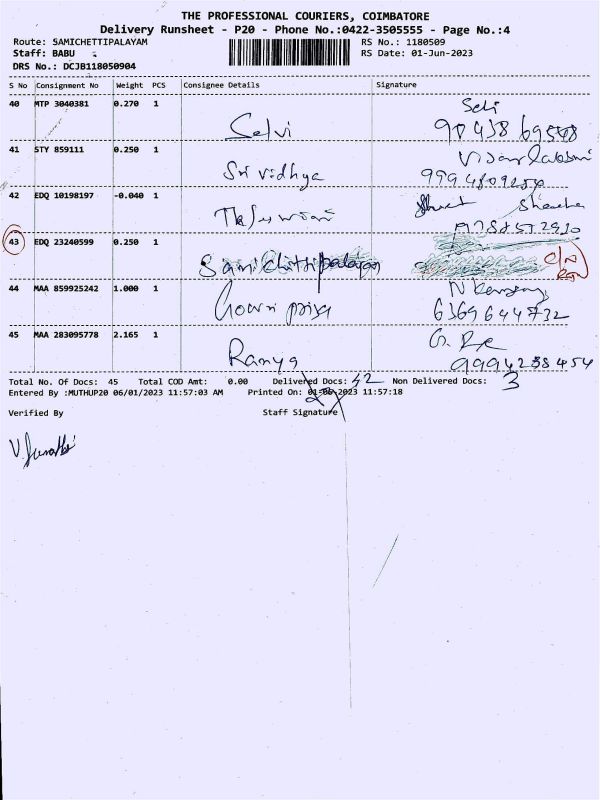 THE PROFESSIONAL COURIERS, COIMBATORE
Delivery Runsheet - P20 - Phone No.:0422-3505555 - Page No.:4
Route: SAMICHETTIPALAYAM RS No.: 1180509
Staff: BABU RS Date: 01-Jun-2023
DRS No.: DCJB118050904
S No Consignment No Weight PCS Consignee Details Signature
40 MTP 3040381 0.270 1
Selvi
41 STY 859111 0.250 1
Sri vidhya
42 EDQ 10198197 -0.040 1
43 EDQ 23240599 0.250 1
Samichettipalayam
44 MAA 859925242 1.000 1
Gowri priya 6369644732
45 MAA 283095778 2.165 1
Ramya
Total No. Of Docs: 45 Total COD Amt: 0.00 Delivered Docs: 42 Non Delivered Docs: 3
Entered By :MUTHUP20 06/01/2023 11:57:03 AM Printed On: 01-06-2023 11:57:18
Verified By Staff Signature